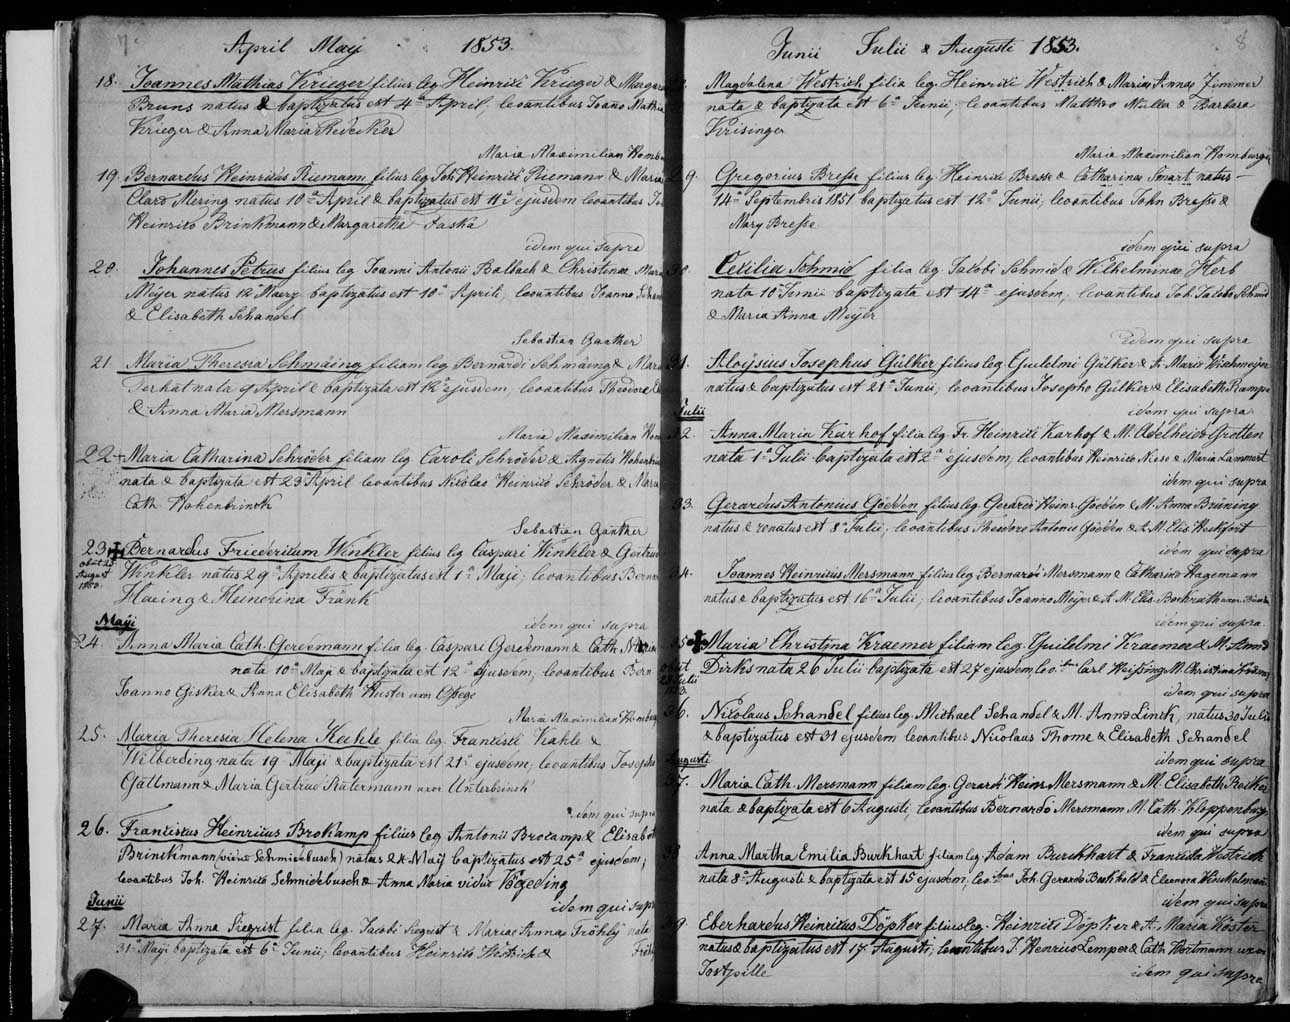 7.
April Maij 1853.
18. Joannes Mathias Krieger filius leg Heinrici Krieger &
Bruns natus & baptizatus est 4ª April; levantibus Joano Mathia
Krieger & Anna Maria
Maria Maximilian
19. Bernardus Heinricus Riemann filius leg Joh Heinrici Riemann & Maria
Clara Mering natus 10ª April & baptizatus est 11ª ejusdem levantibus
Heinrico Brinkmann & Margaretha
idem qui supra
20. Johannes Petrus filius leg Joanni Antonii Balbach & Christinae
Meyer natus 12ª Maerz baptizatus est 10ª Aprili, levantibus Joanno
& Elisabeth Schandel
Sebastian Ganther
21. Maria Theresia Schmäing filiam leg Bernardi Schmäing &
Terhat nata 9 April & baptizata est 12ª ejusdem, levantibus Theodore
& Anna Maria Mersmann
Maria Maximilian
22. Maria Catharina Schröder filiam leg Caroli Schröder & Agnetis
nata & baptizata est 23ª April levantibus Nicolas Heinrico Schröder & Maria
Cath Hohenbrinck
Sebastian Ganther
23. Bernardus Friedericum Winkler filius leg Caspari Winkler &
obiit 25
August
1853.
Winkler natus 29ª Aprilis & baptizatus est 1ª Maji; levantibus
Haeing & Heinerina Fränk
idem qui supra
Maiji
24. Anna Maria Cath. Gerdemann filia leg Caspari Gerdemann & Cath
nata 10ª Maji & baptizata est 12ª ejusdem, levantibus Bern
Joanno Gisker & Anna Elisabeth Huster uxor
Maria Maximilian
25. Maria Theresia Helena Kahle filia leg. Francisci Kahle &
Wilberding nata 19ª Maji & baptizata est 21ª ejusdem; levantibus Josepho
Gattmann & Maria Gertrud Ratermann uxor Unterbrinck
idem qui supra
26. Franciscus Heinricus Brokamp filius leg Antonii Brocamp &
Brinckmann (vidua Schmidebusch) natus 24 Maij baptizatus est 25ª ejusdem;
levantibus Joh. Heinrico Schmidebusch & Anna Maria vidua
idem qui supra
Junii
27. Maria Anna Siegrist filia leg Jacobi Siegrist & Mariae Annae Fröhly nata
31ª Maiji baptizata est 6ª Junii; levantibus Heinrico Westrich &
8
Junii Julii & Augusti 1853.
Magdalena Westrich filia leg Heinrici Westrich & Mariae Annae Zimmer
nata & baptizata est 6ª Junii; levantibus Mattheo Müller & Barbara
Krisinger
Maria Maximilian Homburger
29. Gregorius Bresse filius leg Heinrici Bresse & Catharinae Smart natus
14ª Septembris 1851 baptizatus est 12ª Junii, levantibus John Bresse &
Mary Bresse
idem qui supra
30. Cecilia Schmid filia leg Jacobi Schmid & Wilhelminae Herb
nata 10ª Junii baptizata est 14ª ejusdem; levantibus Joh. Jacobo Schmid
& Maria Anna Meijer
idem qui supra
31. Aloysius Josephus Gülker filius leg Guilelmi Gülker & A. Maria
natus & baptizatus est 21ª Junii, levantibus Josepho Gülker & Elisabeth
idem qui supra.
Julii
32. Anna Maria Karhof filia leg. Fr. Heinrici Karhof & M. Adelheid Grotten
nata 1ª Julii baptizata est 2ª ejusdem, levantibus Heinrico Niese & Maria Lammert
idem qui supra
33. Gerardus Antonius Göcden filius leg. Gerardi Heinr. Göcden & M. Anna Brüning
natus & renatus est 8ª Julii; levantibus Theodoro Antonio Göcden & A. M. Elis
idem qui supra
34. Joannes Heinricus Mersmann filius leg Bernardi Mersmann & Catharina Hagemann
natus & baptizatus est 16ª Julii; levantibus Joanno Meijer & A. M. Elis.
idem qui supra.
35 Maria Christina Kraemer filiam leg. Guilelmi Kraemer & M. Anna
obiit
28 Julii
1853.
Dirks nata 26 Julii baptizata est 27 ejusdem, Carl M. Christina
idem qui supra
36. Nicolaus Schandel filius leg. Michael Schandel & M. Anna Linck, natus 30 Julii
& baptizatus est 31 ejusdem levantibus Nicolaus Thome & Elisabeth Schandel
idem qui supra
Augusti
37. Maria Cath. Mersmann filiam leg Gerardi Heinr. Mersmann & M. Elisabeth
nata & baptizata est 6 Augusti, levantibus Bernardo Mersmann M. Cath. Kloppenborg
idem qui supra
38 Anna Martha Emilia Burkhart filiam leg. Adam Burckhart & Francisca Westrich
nata 8ª Augusti & baptizata est 15 ejusdem, Joh. Gerardo Burkhold & Eleonora
idem qui supra
39. Eberhardus Heinricus Döpker filius leg. Heinrici Döpker & A. Maria Köster
natus & baptizatus est 17 Augusti; levantibus J. Henrico Lemper & Cath Hortmann uxor
idem qui supra